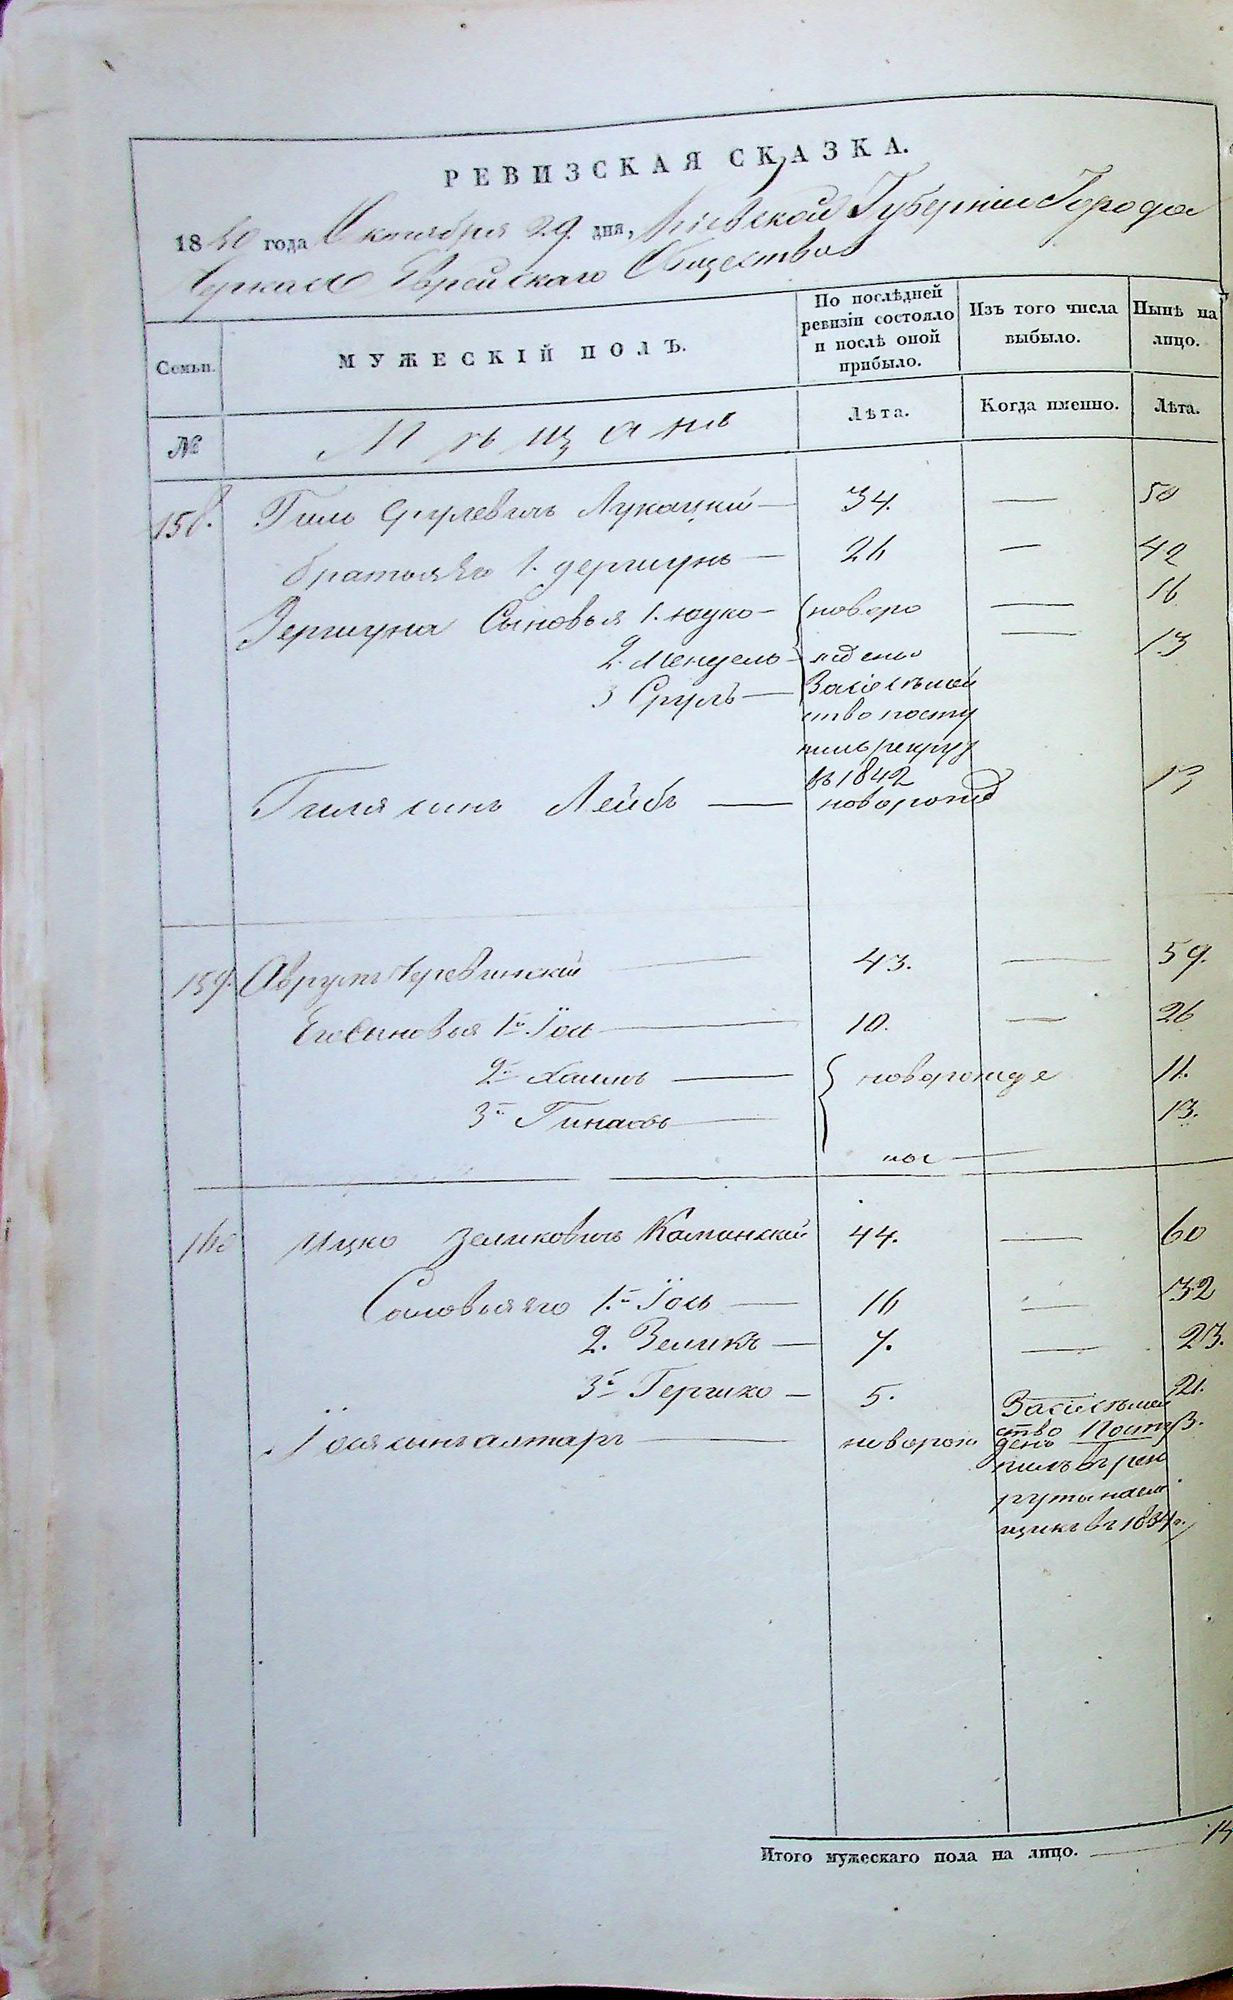 РЕВИЗСКАЯ СКАЗКА.
1850 года Октября 29 дня, Кіевской Губерніи Города
Еврейскаго Общества
Семьи.
МУЖЕСКІЙ ПОЛЪ.
По послѣдней ревизіи состояло и послѣ оной прибыло.
Изъ того числа выбыло.
Нынѣ на лицо.
№
Мѣщанъ
Лѣта.
Когда именно.
Лѣта.
158. Гиль Срулевичъ Лукацкій — 34. — 50
братья его 1. Гершунъ — 26 — 42
Гершуна Сыновья 1. Юдко — новоро — 16
2. Мендель — жденъ — 13
3 Сруль — За
ство посту
пилъ рекрут
въ 1842
Гиля сынъ Лейбъ — новорожд 13
159. Аврумъ — 43. — 59.
Его Сыновья 1й Іось — 10. — 26
2й Хаимъ — новорожде 11.
3й Пинхасъ — 13.
ные —
160 Ицко Зеликовичъ Каманскій 44. — 60
Сыновья его 1й Іось — 16 — 32
2. Зеликъ — 7. — 23.
3й Гершко — 5. 21.
За
ство Посту
Іося сынъ Алтаръ — новорож день 3.
пилъ въ рек
руты наем
щикъ въ 1834 г.
Итого мужескаго пола на лицо. — 14